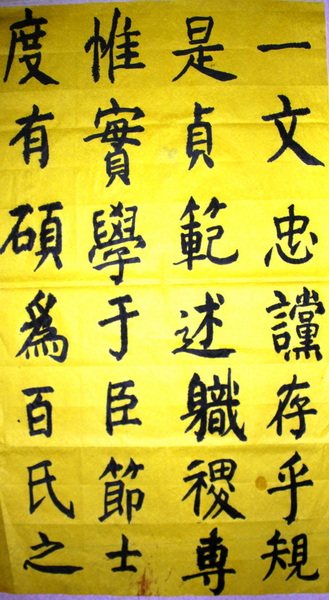 一文忠讜存乎規
是貞範述軄禝專
惟實學于臣節士
度有碩為百氏之